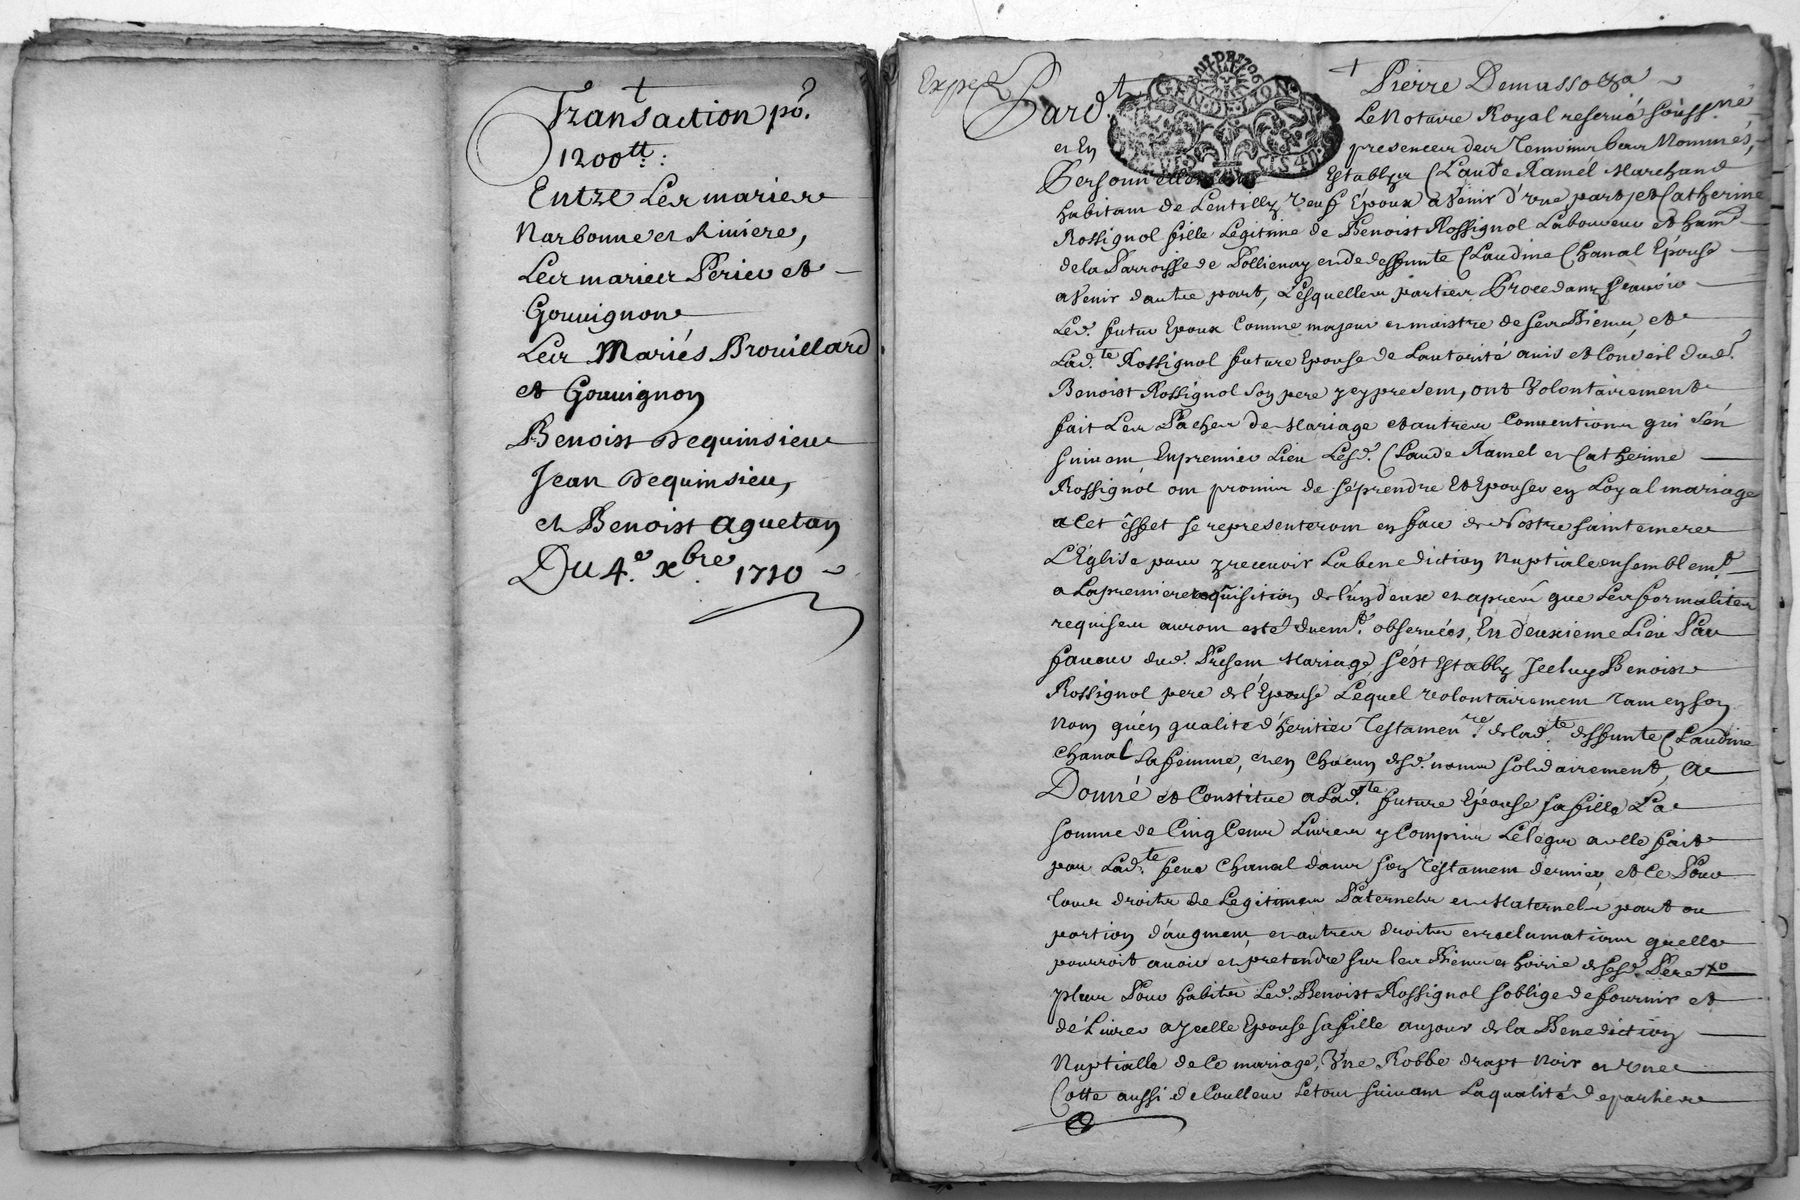 Transaction po.
1200tt:
Entre Les mariers
Narbonne et Riviere,
Les mariez Perieu et
Gouvignon
Les Mariés Brouillard
et Gouvignon
Benoist Dequinsieu
Jean Dequinsieu,
et Benoist aguetan
Du 4e. xbre. 1710
Exped
Pard.t Pierre Demassoz
GEN. DE LION
Le Notaire Royal reservé soussné
et En presence des Temoins bas Nommés,
Personnellement Establys Claude Ramel Marchand
habitant de Lentilly veuf Epoux a Venir d'vne part, et Catherine
Rossignol fille Legitime de Benoist Rossignol Laboureur et hant
de la Parroisse de Pollienay en de deffunte Claudine Chanal Epouse
a Venir dautre part, Lesquelles parties Procedans scavoir
Led. futur Epoux Comme majeur et maistre de ses Biens, et
Lad.te Rossignol future Epouse de Lautorité avis et Conseil dud.
Benoist Rossignol son pere y present, ont Volontairement
fait Les Paches de Mariage et autres Conventions qui s'en
suivent En premier Lieu Lesd. Claude Ramel et Catherine
Rossignol ont promis de se prendre Et Epouser en Loyal mariage
a Cet effet se representeront en face de Nostre sainte mere
L'Eglise pour y recevoir La benediction Nuptiale ensemblemt
a La premiere requisition de l'un deux et aprés que Les formalites
requises auront esté duemt. observées, En deuxieme Lieu Par
faveur dud. Present Mariage s'est Establÿ Jceluy Benoist
Rossignol pere de l'Epouse Lequel volontairement tant en son
Nom qu'en qualite d'heritier Testamenre. de lad.te deffunte Claudine
Chanal sa femme, et en Chacun desd. noms solidairement, a
Donné et Constitue a Lad.te future Epouse sa fille La
somme de Cinq Cens Livres y Compris Le legs a elle fait
par Lad.te feue Chanal dans son Testament dernier, et Ce Pour
tous droits de Legitimes Paternels et Maternels part ou
portion d'augment, et autres droits et reclamations quelle
pourroit avoir et pretendre sur les Biens et hoirie desd. Pere
plus Pour habits Led. Benoist Rossignol s'oblige de fournir et
de Livrer a Jcelle Epouse sa fille au jour de la Benediction
Nuptialle de Ce mariage, Vne Robbe drapt Noir et vne
Cotte aussi de Coulleur Le tout suivant La qualité de parties